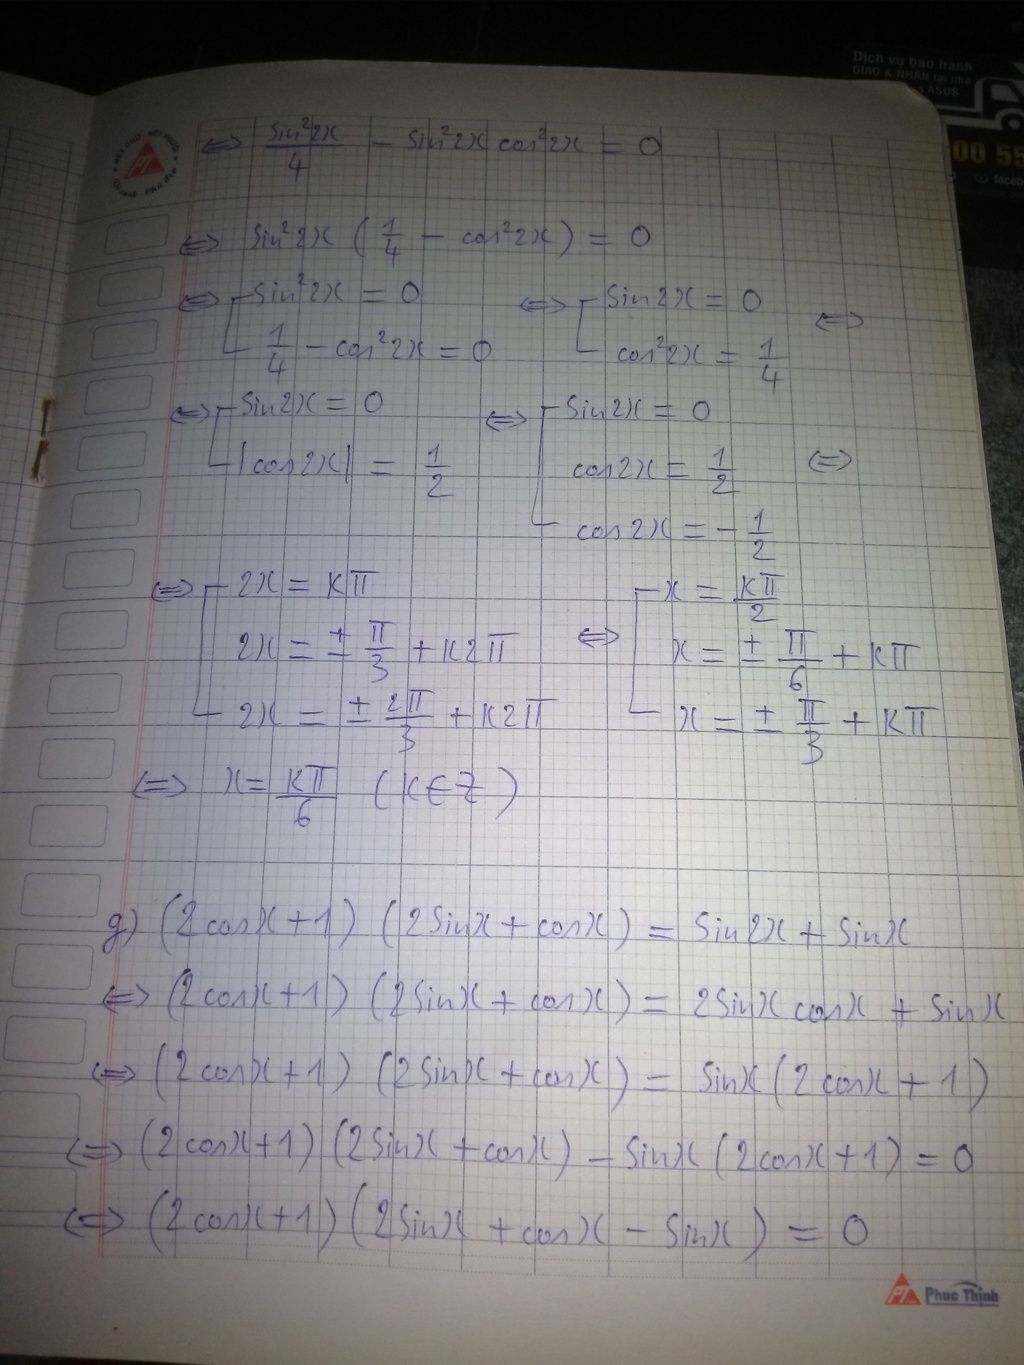 Dịch vụ bảo hành
GIAO & NHẬN tại nhà
ASUS
00 55
faceb
PT
⇔ sin²2x/4 - sin²2x cos²2x = 0
⇔ sin²2x (1/4 - cos²2x) = 0
⇔ [ sin²2x = 0 ⇔ [ sin2x = 0 ⇔
1/4 - cos²2x = 0 cos²2x = 1/4
⇔ [ sin2x = 0 ⇔ [ sin2x = 0
|cos2x| = 1/2 cos2x = 1/2 ⇔
cos2x = -1/2
⇔ [ 2x = kπ ⇔ [ x = kπ/2
2x = ± π/3 + k2π x = ± π/6 + kπ
2x = ± 2π/3 + k2π x = ± π/3 + kπ
⇔ x = kπ/6 (k∈Z)
g) (2cosx+1) (2sinx + cosx) = sin2x + sinx
⇔ (2cosx+1) (2sinx + cosx) = 2sinx cosx + sinx
⇔ (2cosx+1) (2sinx + cosx) = sinx (2cosx + 1)
⇔ (2cosx+1) (2sinx + cosx) - sinx (2cosx+1) = 0
⇔ (2cosx+1) (2sinx + cosx - sinx) = 0
PT Phúc Thịnh